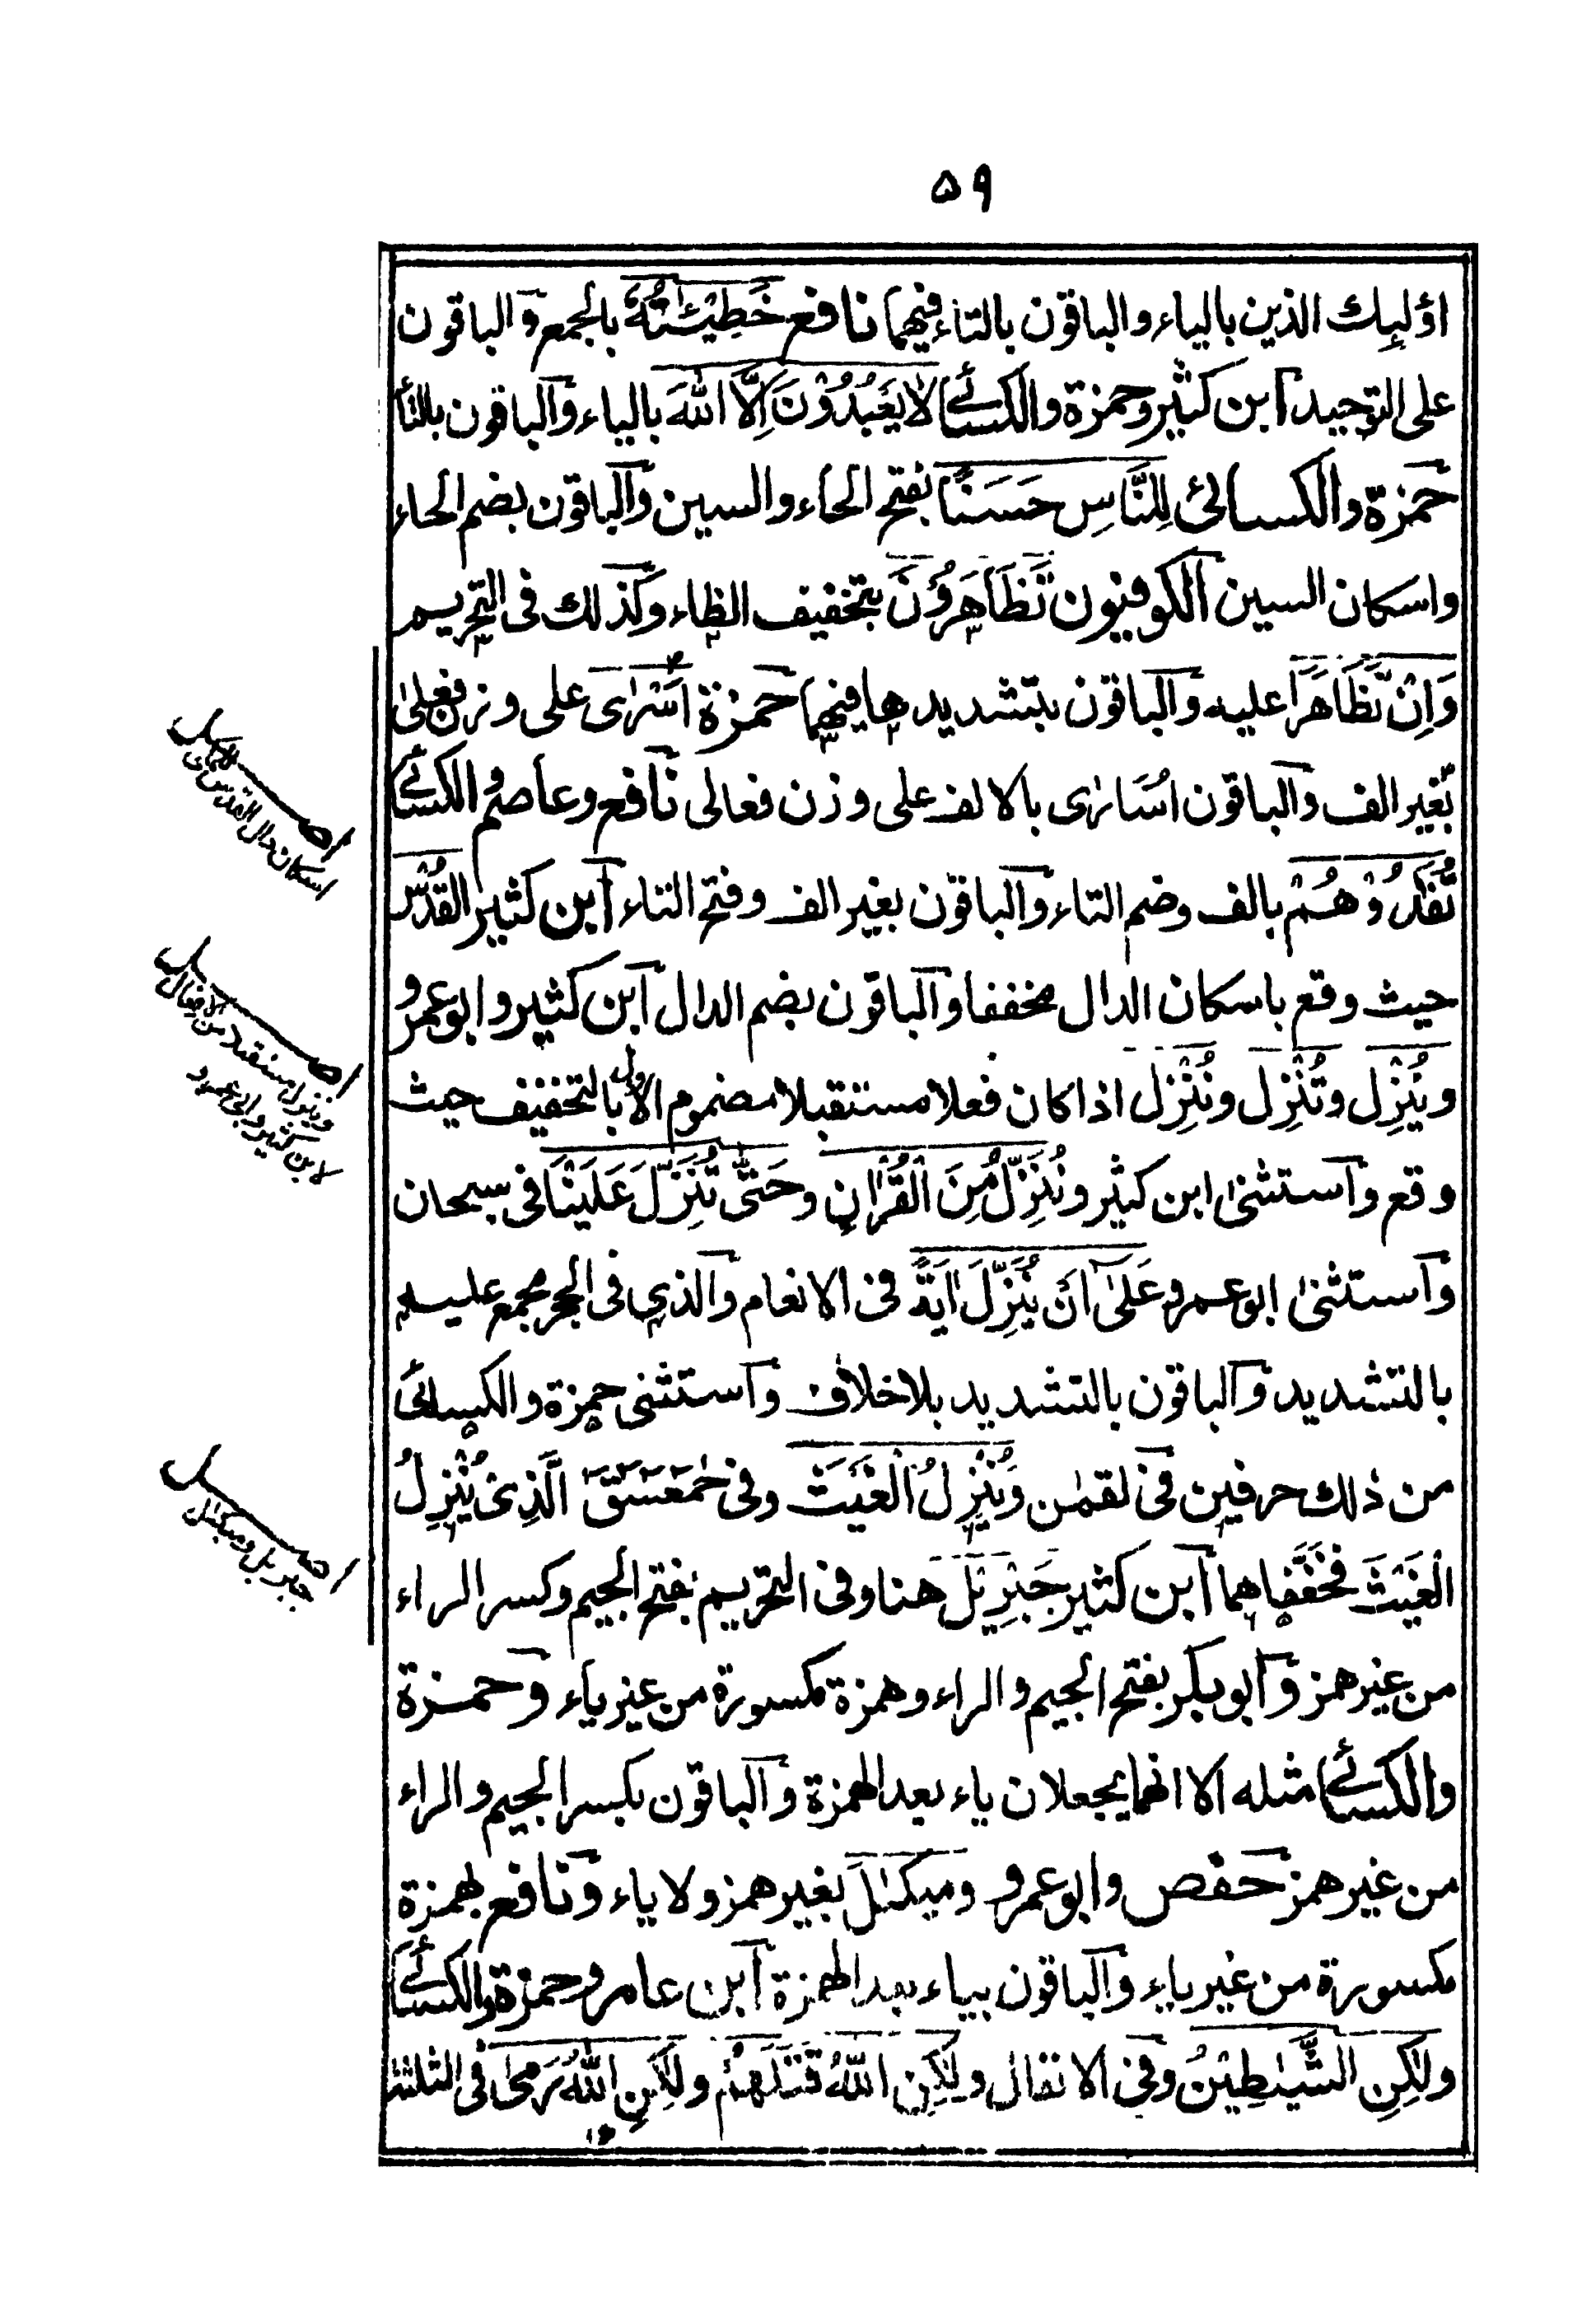 ٥٩
اؤلٓئِك الذين بالياء والباقون بالتاء فيهما نافع خَطِيْـٰٔتُهٗ بالجمع والباقون
على التوحيد ابن كثير وحمزة والكسائى لَا يَعْبُدُوْنَ اِلَّا اللّٰهَ بالياء والباقون بالتاء
حمزة والكسائى لِلنَّاسِ حَسَنًا بفتح الحاء والسين والباقون بضم الحاء
واسكان السين الكوفيون تَظَاهَرُوْنَ بتخفيف الظاء وكذلك فى التحريم
وَاِنْ تَظَاهَرَا عليه والباقون بتشديدها فيهما حمزة اَسْرٰى على وزن فعلىٰ
بغير الف والباقون اُسَارٰى بالالف على وزن فعالى نافع وعاصم والكسائى
تُفٰدُوْهُمْ بالف وضم التاء والباقون بغير الف وفتح التاء ابن كثير القُدْس
حيث وقع باسكان الدال مخففا والباقون بضم الدال ابن كثير وابو عمرو
وَيُنْزِل وتُنْزِل ونُنْزِل اذا كان فعلا مستقبلا مضموم الاول بالتخفيف حيث
وقع واستثنىٰ ابن كثير ونُنَزِّلُ مِنَ الْقُرْاٰنِ وحَتّٰى تُنَزِّلَ عَلَيْنَا فى سبحان
واستثنىٰ ابو عمرو عَلٰٓى اَنْ يُّنَزِّلَ اٰيَةً فى الانعام والذى فى الحجر مجمع عليه
بالتشديد والباقون بالتشديد بلا خلاف واستثنى حمزة والكسائى
من ذٰلك حرفين فى لقمٰن وَيُنْزِلُ الْغَيْثَ وفى حٰمٓعٓسٓقٓ الَّذِىْ يُنْزِلُ
الْغَيْثَ فخَفَّفاهما ابن كثير جَبْرِيْلَ هنا وفى التحريم بفتح الجيم وكسر الراء
من غير همز وابو بكر بفتح الجيم والراء وهمزة مكسورة من غير ياء وحمزة
والكسائى مثله الا انهما يجعلان ياء بعد الهمزة والباقون بكسر الجيم والراء
من غير همز حفص وابو عمرو وميكٰىلَ بغير همز ولا ياء ونافع بهمزة
مكسورة من غير ياء والباقون بياء بعد الهمزة ابن عامر وحمزة والكسائى
ولٰكِنِ الشَّيٰطِيْنُ وفى الانفال ولٰكِنِ اللّٰهُ قَتَلَهُمْ ولٰكِنِ اللّٰهُ رَمٰى فى الثلٰثة
اسكان دال القدس
وينزل مستقبلا من الافعال
لابن كثير وابى عمرو
جبريل وميكٰىل